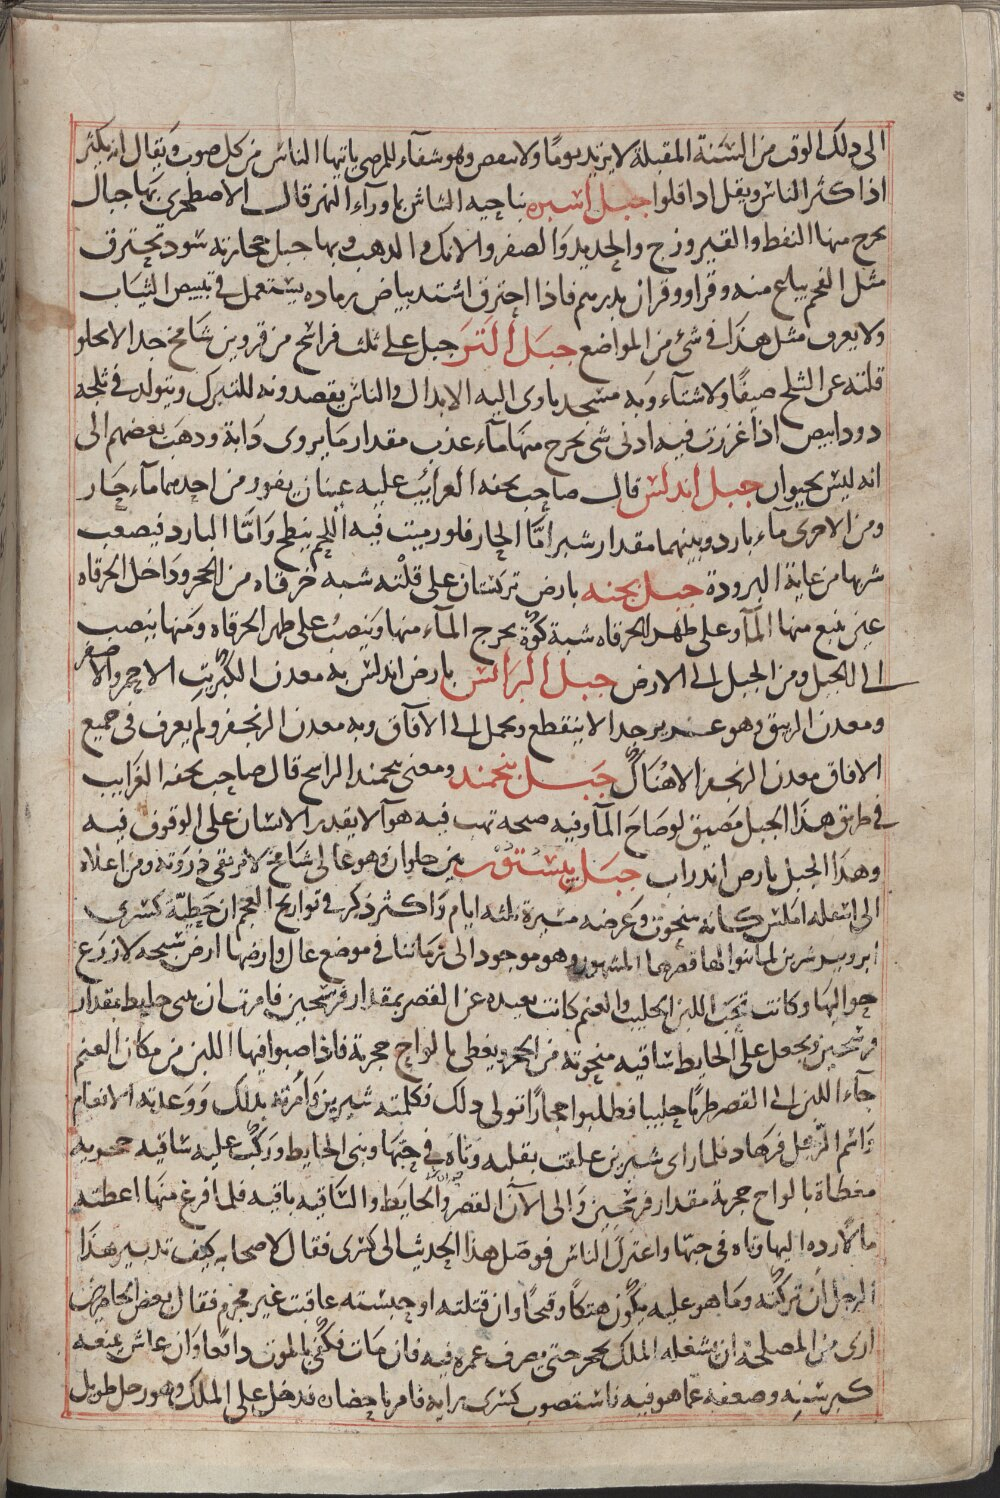 الى ذلك الوقت من السنة المقبلة لا يزيد يوما ولا ينقص وهو شفاء للمرضى ياتيها الناس من كل صوب ويقال انه يكثر
اذا كثر الناس ويقل اذا قلوا جبل اسبره بناحيه الشاش بما وراء النهر قال الاصطخرى بها جبال
يخرج منها النفط والفيروزج والحديد والصفر والانك والذهب وبها جبل حجارته سود تحترق
مثل الفحم يباع منه وقر او وقران بدرهم فاذا احترق اشتد بياض رماده يستعمل في تبييض الثياب
ولا يعرف مثل هذا في شئ من المواضع جبل التر جبل على ثلث فراسخ من قزوين شامخ جدا لا يخلو
قلته عن الثلج صيفا ولا شتاء وبه مسجد ياوى اليه الابدال والناس يقصدونه للتبرك ويتولد في ثلجه
دود ابيض اذا غرزت فيه ادنى شى يخرج منها ماء عذب مقدار ما يروى دابة وذهب بعضهم الى
انه ليس بحيوان جبل اندلس قال صاحب تحفه الغرائب عليه عينان يفور من احديهما ماء حار
ومن الاخرى ماء بارد وبينهما مقدار شبر اما الحار فلو رميت فيه اللحم ينطبخ واما البارد فيصعب
شربها من غاية البرودة جبل بجنه بارض تركستان على قلته شبه خرقاه من الحجر وداخل الخرقاه
عين ينبع منها الماء وعلى ظهر الخرقاه شبة كوة يخرج الماء منها وينصب على ظهر الخرقاه ومنها ينصب
الى الجبل ومن الجبل الى الارض جبل البرانس بارض اندلس به معدن الكبريت الاحمر والاصفر
ومعدن الزيبق وهو غزير جدا لا ينقطع ويحمل الى الافاق وبه معدن الزنجفر ولم يعرف في جميع
الافاق معدن الزنجفر الا هناك جبل بنجمند ومعنى بنجمند الرابح قال صاحب تحفه الغرايب
في طريق هذا الجبل مضيق لو صاح المار فيه صيحه تهب فيه هواء لا يقدر الانسان على الوقوف فيه
وهذا الجبل بارض اندراب جبل بيستون بين حلوان وهو عالى شامخ لا يرتقى ذروته ومن اعلاه
الى اسفله املس كانه منحوت وعرضه مسيرة ثلثه ايام واكثر ذكر في تواريخ العجم ان حظية كسرى
ابرويز شيرين لما بنوا لها قصرهما المشهور وهو موجود الى زماننا في موضع عال وارضها ارض سبخه لا زرع
حواليها وكانت تحب اللبن الحليب والغنم كانت بعيده عن القصر بمقدار فرسخين فامرت ان يبنى حايط بمقدار
فرسخين ويجعل على الحايط ساقيه منحوتة من الحجر ويغطى بالواح حجرية فاذا صبوا فيها اللبن من مكان الغنم
جاء اللبن الى القصر طريا حليبا فطلبوا حجارا تولى ذلك فكلمته شيرين وامرته بذلك ووعدته الانعام
واسم الرجل فرهاد فلما راى شيرين علقت بقلبه وتاه في حبها وبنى الحايط وركب عليه ساقيه حجريه
مغطاة بالواح حجرية مقدار فرسخين والى الان القصر والحايط والساقيه باقيه فلما فرغ منها اعطته
مالا رده اليها وتاه في حبها واعتزل الناس فوصل هذا الحديث الى كسرى فقال لاصحابه كيف تدبير هذا
الرجل ان تركته وما هو عليه يكون هتكا وقبحا وان قتلته او حبسته عاقبت غير مجرم فقال بعض الحاضرين
ارى من المصلحة ان يشغله الملك بحجر حتى يصرف عمره فيه فان مات فكفى بالموت دافعا وان عاش يمنعه
كبر سنه وضعفه عما هو فيه فاستصوب كسرى رايه فامر باحضاره فدخل على الملك وهو رجل طويل